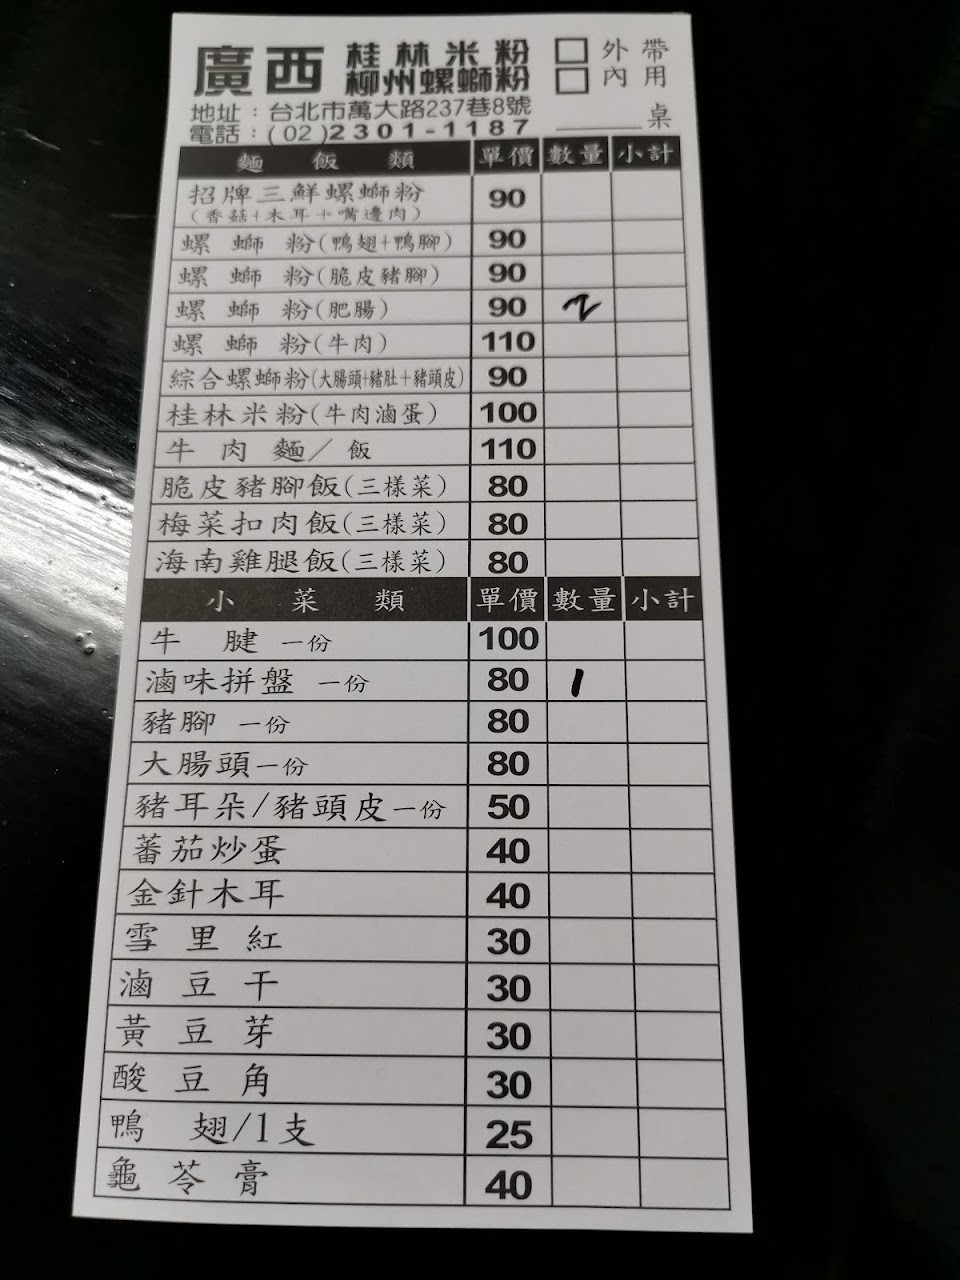 廣西 桂林米粉 柳州螺螄粉 □外帶 □內用
地址：台北市萬大路237巷8號
電話：(02)2301-1187 ____桌
麵飯類 單價 數量 小計
招牌三鮮螺螄粉 90
(香菇+木耳+嘴邊肉)
螺螄粉(鴨翅+鴨腳) 90
螺螄粉(脆皮豬腳) 90
螺螄粉(肥腸) 90 2
螺螄粉(牛肉) 110
綜合螺螄粉(大腸頭+豬肚+豬頭皮) 90
桂林米粉(牛肉滷蛋) 100
牛肉麵／飯 110
脆皮豬腳飯(三樣菜) 80
梅菜扣肉飯(三樣菜) 80
海南雞腿飯(三樣菜) 80
小菜類 單價 數量 小計
牛腱 一份 100
滷味拼盤 一份 80 1
豬腳 一份 80
大腸頭一份 80
豬耳朵/豬頭皮一份 50
蕃茄炒蛋 40
金針木耳 40
雪里紅 30
滷豆干 30
黃豆芽 30
酸豆角 30
鴨翅/1支 25
龜苓膏 40